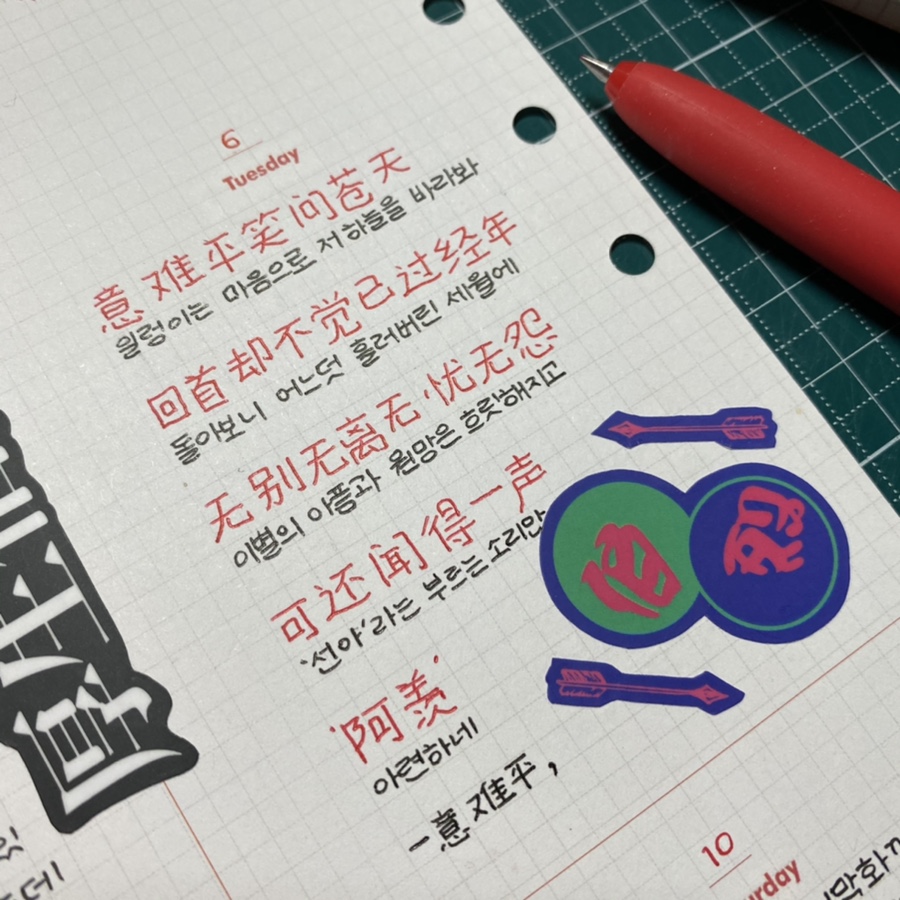 6
Tuesday
意难平笑问苍天
일렁이는 마음으로 저 하늘을 바라봐
回首却不觉已过经年
돌아보니 어느덧 흘러버린 세월에
无别无离无忧无怨
이별의 아픔과 원망은 흐릿해지고
可还闻得一声
'선아'라는 부르는 소리만
'阿羡'
아련하네
一意难平，
10